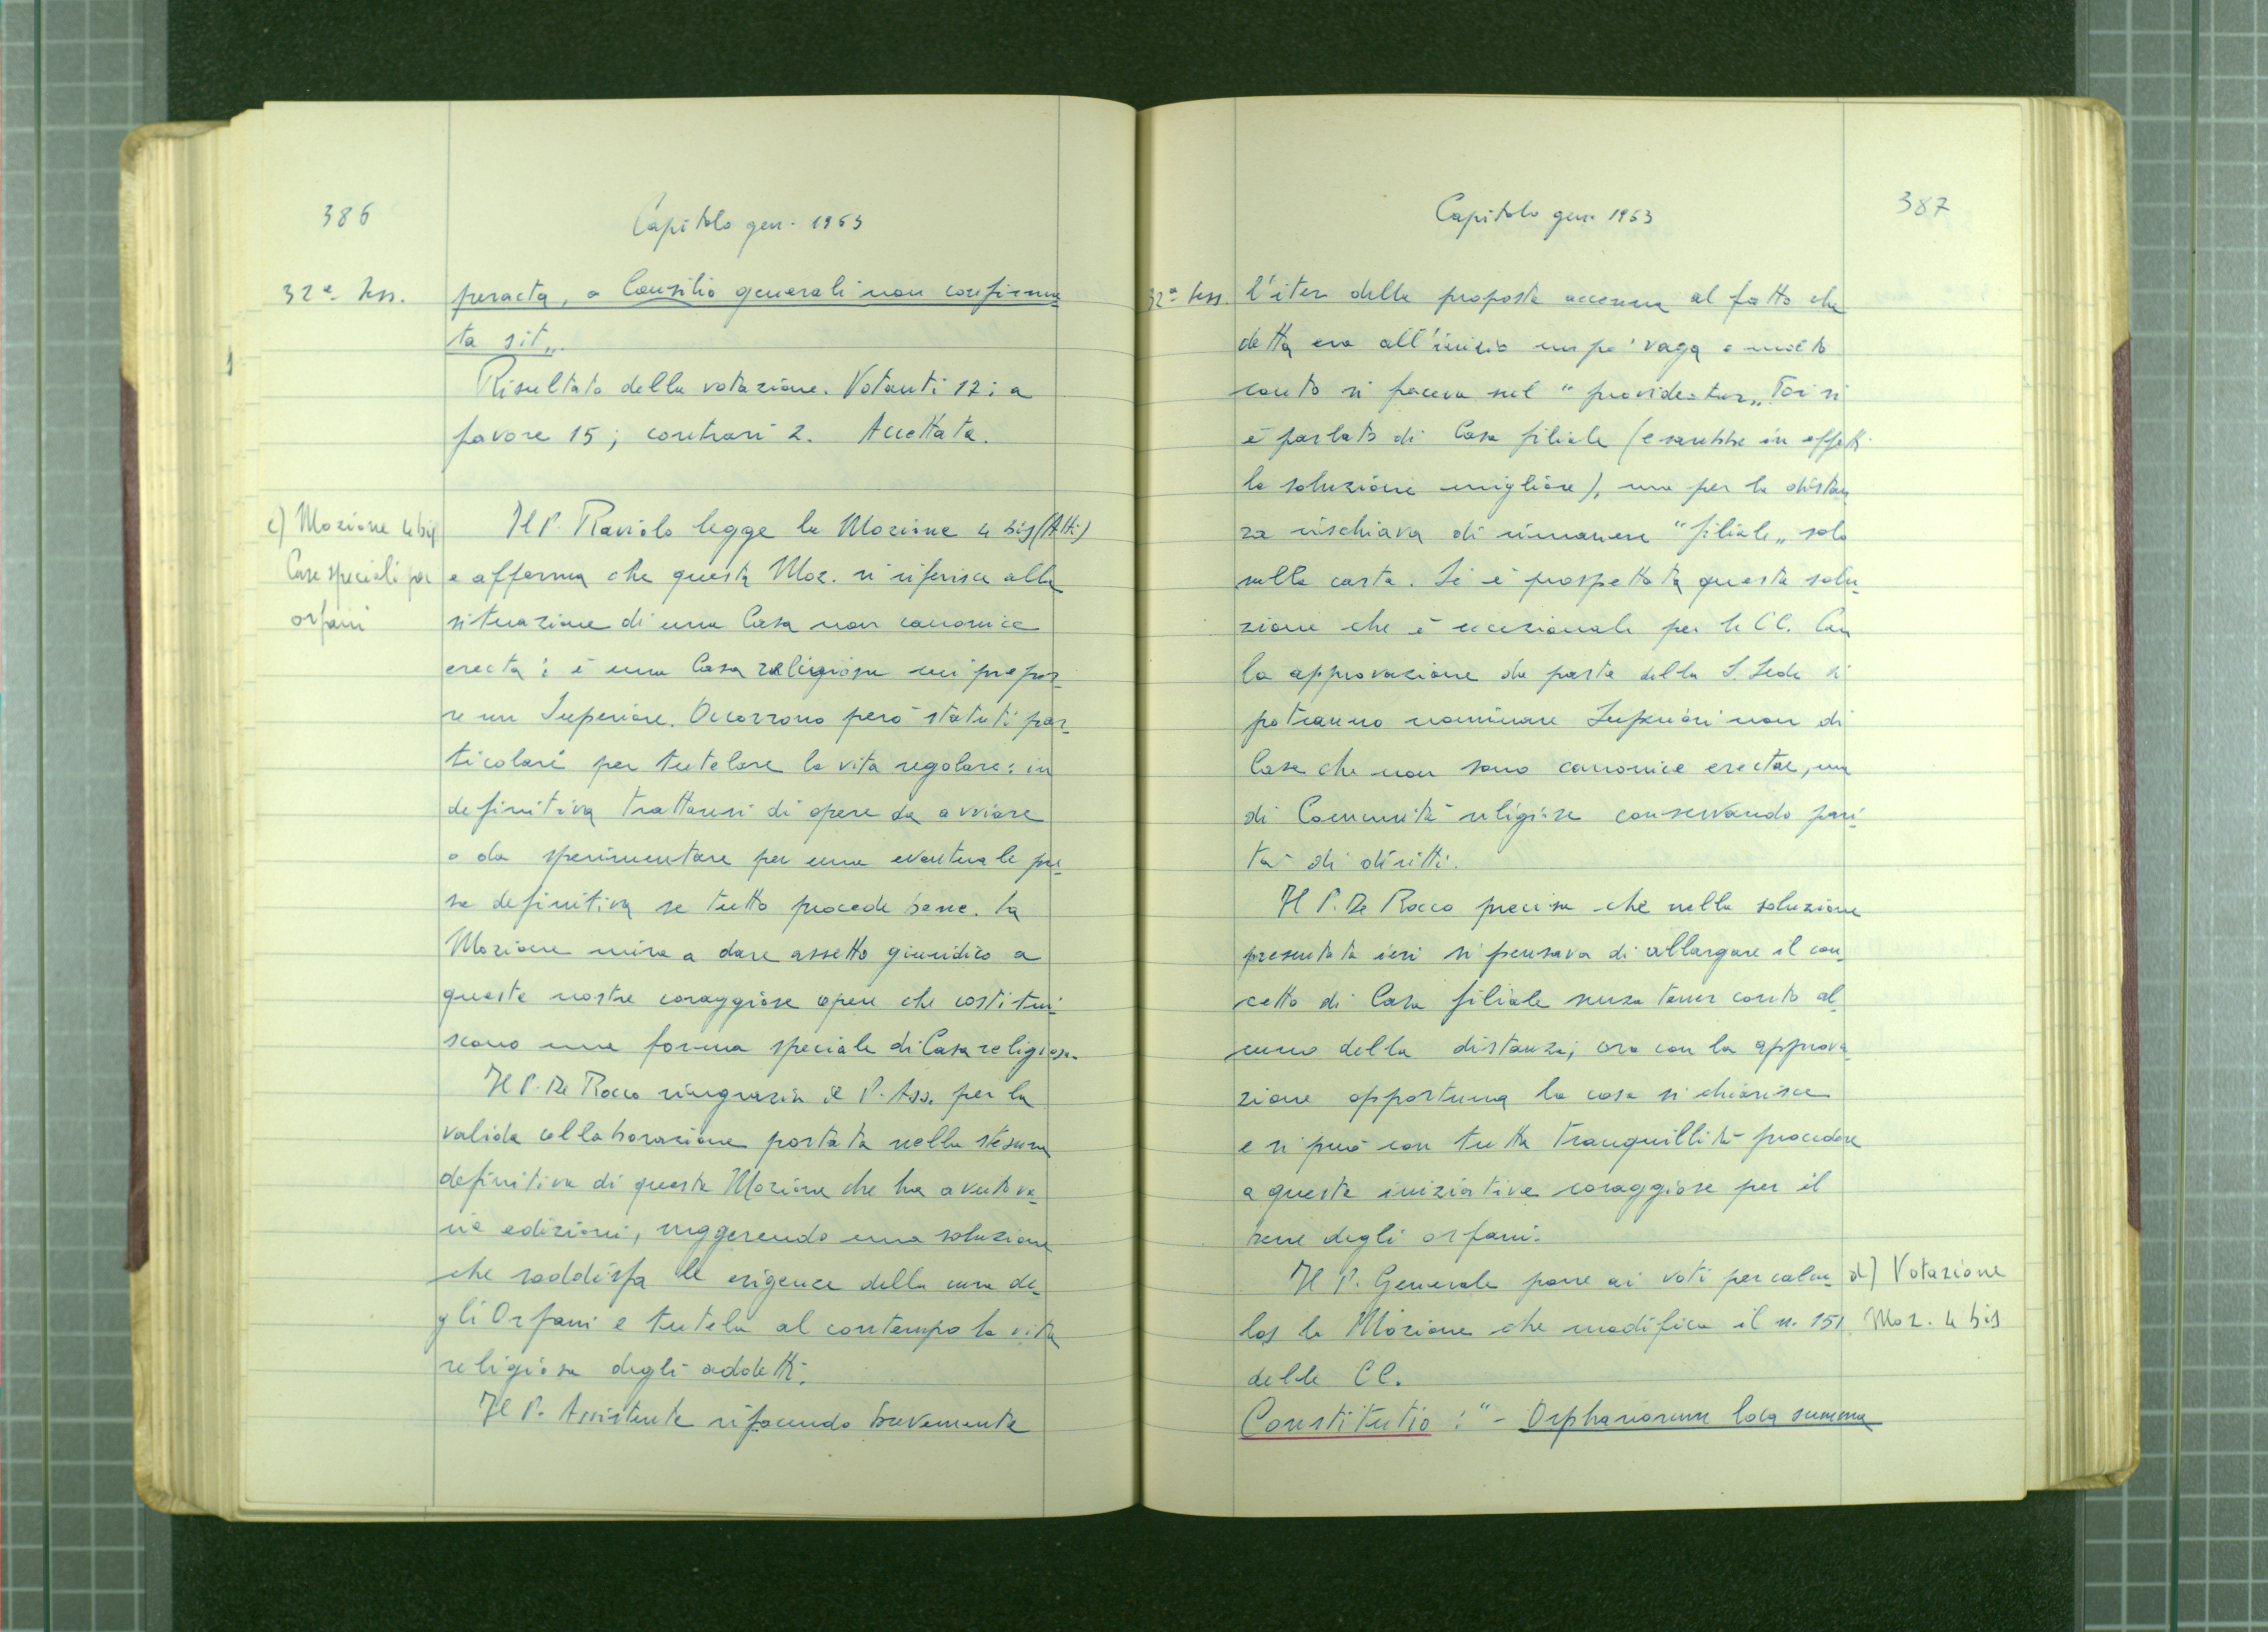 386
Capitolo gen. 1963
32ª Sess.
peracta, a Consilio generali non confirma-
ta sit„.
Risultato della votazione. Votanti 17: a
favore 15; contrari 2. Accettata.
c) Mozione 4 bis
Case speciali per
orfani
Il P. Raviolo legge la Mozione 4 bis (Atti)
e afferma che questa Moz. si riferisce alla
situazione di una Casa non canonice
erecta: è una Casa religiosa cui prepor-
re un Superiore. Occorrono però statuti par-
ticolari per tutelare la vita regolare: in
definitiva trattasi di opere da avviare
o da sperimentare per una eventuale pre-
sa definitiva se tutto procede bene. La
Mozione mira a dare assetto giuridico a
queste nostre coraggiose opere che costitui-
scono una forma speciale di Casa religiosa.
Il P. De Rocco ringrazia il P. Ass. per la
valida collaborazione portata nella stesura
definitiva di questa Mozione che ha avuto va-
rie edizioni, suggerendo una soluzione
che soddisfa le esigenze della cura de-
gli Orfani e tutela al contempo la vita
religiosa degli addetti.
Il P. Assistente rifacendo brevemente
Capitolo gen. 1963
387
32ª Sess.
l'iter della proposta accenna al fatto che
detta era all'inizio un po' vaga e molto
conto si faceva sul "provideatur„. Poi si
è parlato di Casa filiale (e sarebbe in effetti
la soluzione migliore), ma per la distan-
za rischiava di rimanere "filiale„ solo
sulla carta. Si è prospettata questa solu-
zione che è eccezionale per le CC. Con
la approvazione da parte della S. Sede si
potranno nominare Superiori non di
Case che non sono canonice erectae, ma
di Comunità religiose conservando pari-
tà di diritti.
Il P. De Rocco precisa che nella soluzione
presentata ieri si pensava di allargare il con-
cetto di Casa filiale senza tener conto al-
cuno della distanza; ora con la approva-
zione opportuna la cosa si chiarisce
e si può con tutta tranquillità procedere
a queste iniziative coraggiose per il
bene degli orfani.
Il P. Generale pone ai voti per calcu-
los la Mozione che modifica il n. 151
delle CC.
d) Votazione
Moz. 4 bis
Constitutio: "- Orphanorum loca summa